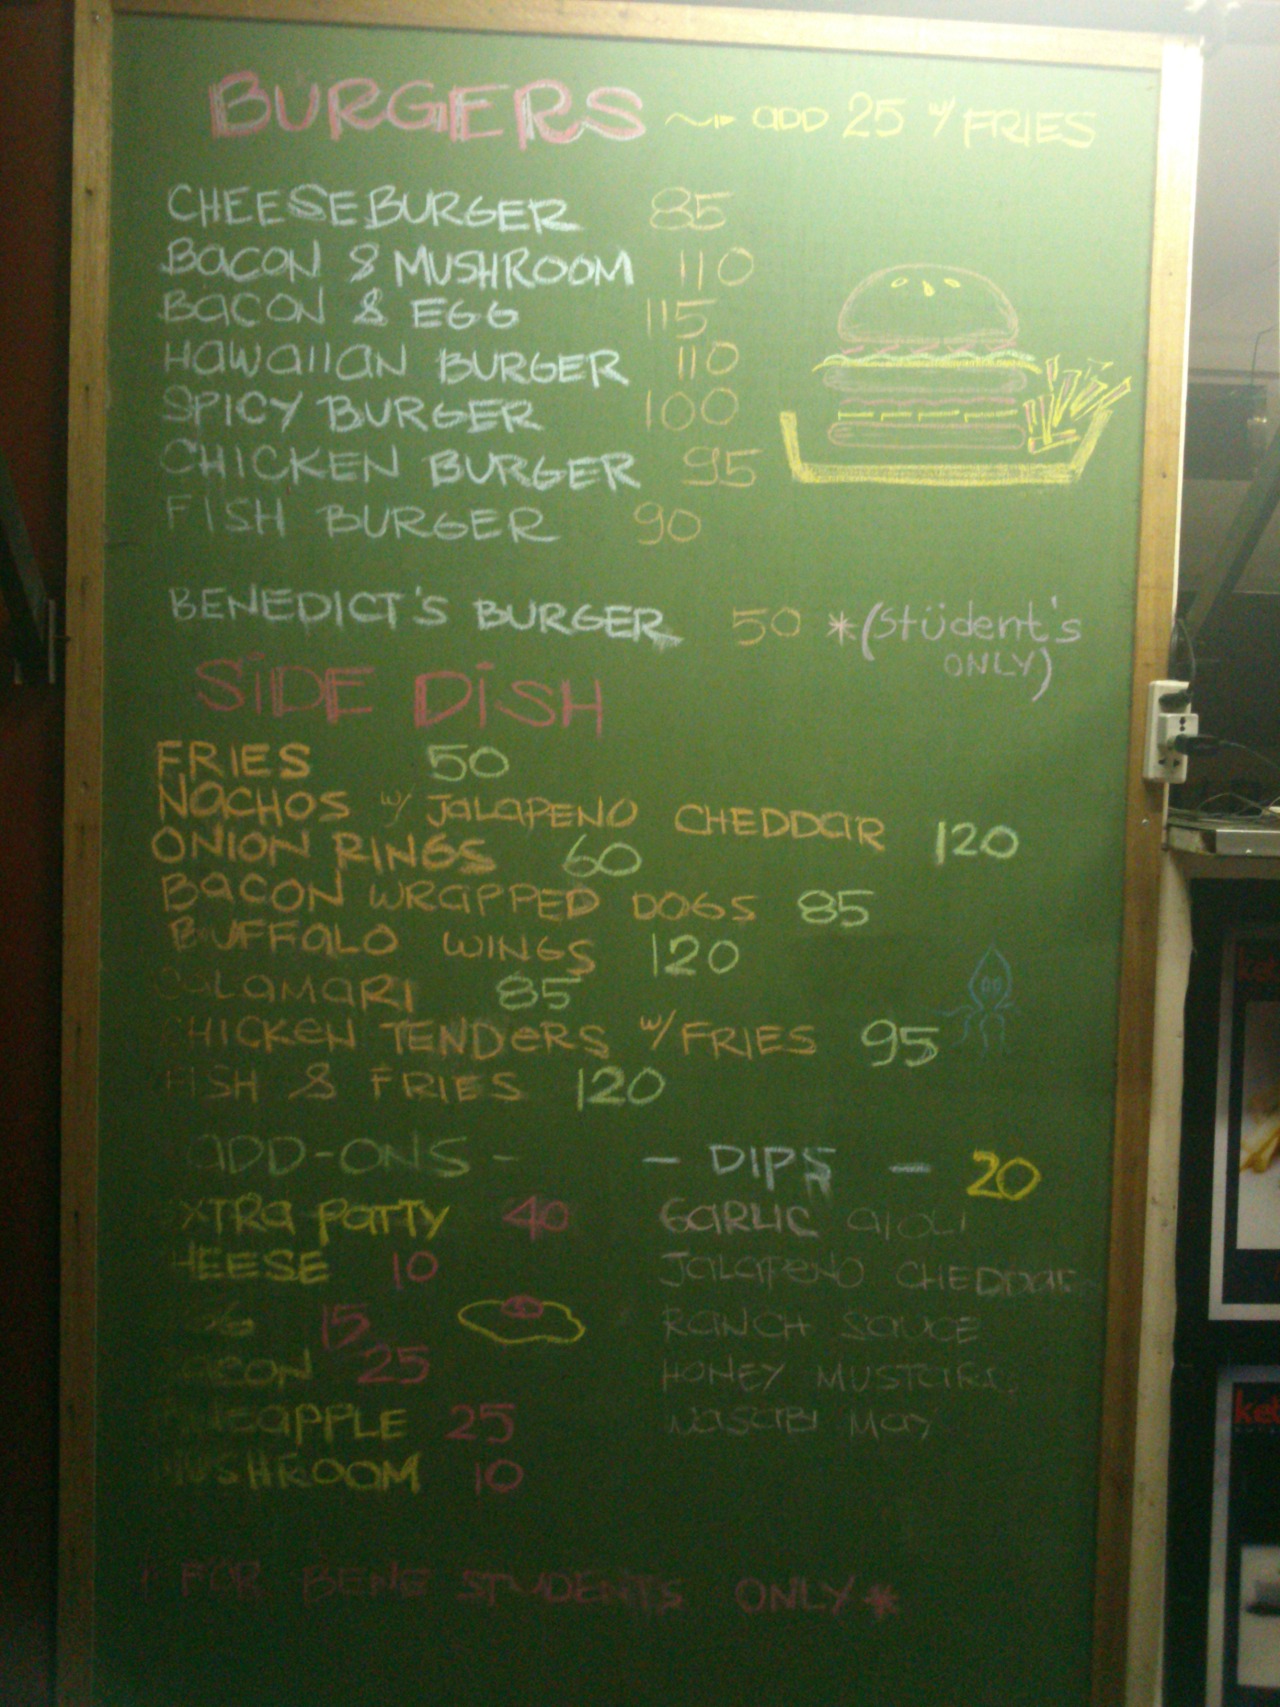 BURGERS ~ ADD 25 w/ FRIES
CHEESEBURGER 85
BACON & MUSHROOM 110
BACON & EGG 115
HAWAIIAN BURGER 110
SPICY BURGER 100
CHICKEN BURGER 95
FISH BURGER 90
BENEDICT'S BURGER 50 *(Stüdent's
ONLY)
SIDE DISH
FRIES 50
NACHOS w/ JALAPENO CHEDDAR 120
ONION RINGS 60
BACON WRAPPED DOGS 85
BUFFALO WINGS 120
CALAMARI 85
CHICKEN TENDERS w/ FRIES 95
FISH & FRIES 120
ADD-ONS -
EXTRA PATTY 40
CHEESE 10
EGG 15
BACON 25
PINEAPPLE 25
MUSHROOM 10
- DIPS - 20
GARLIC AIOLI
JALAPENO CHEDDAR
RANCH SAUCE
HONEY MUSTARD
WASABI MAY
* FOR BENE STUDENTS ONLY *